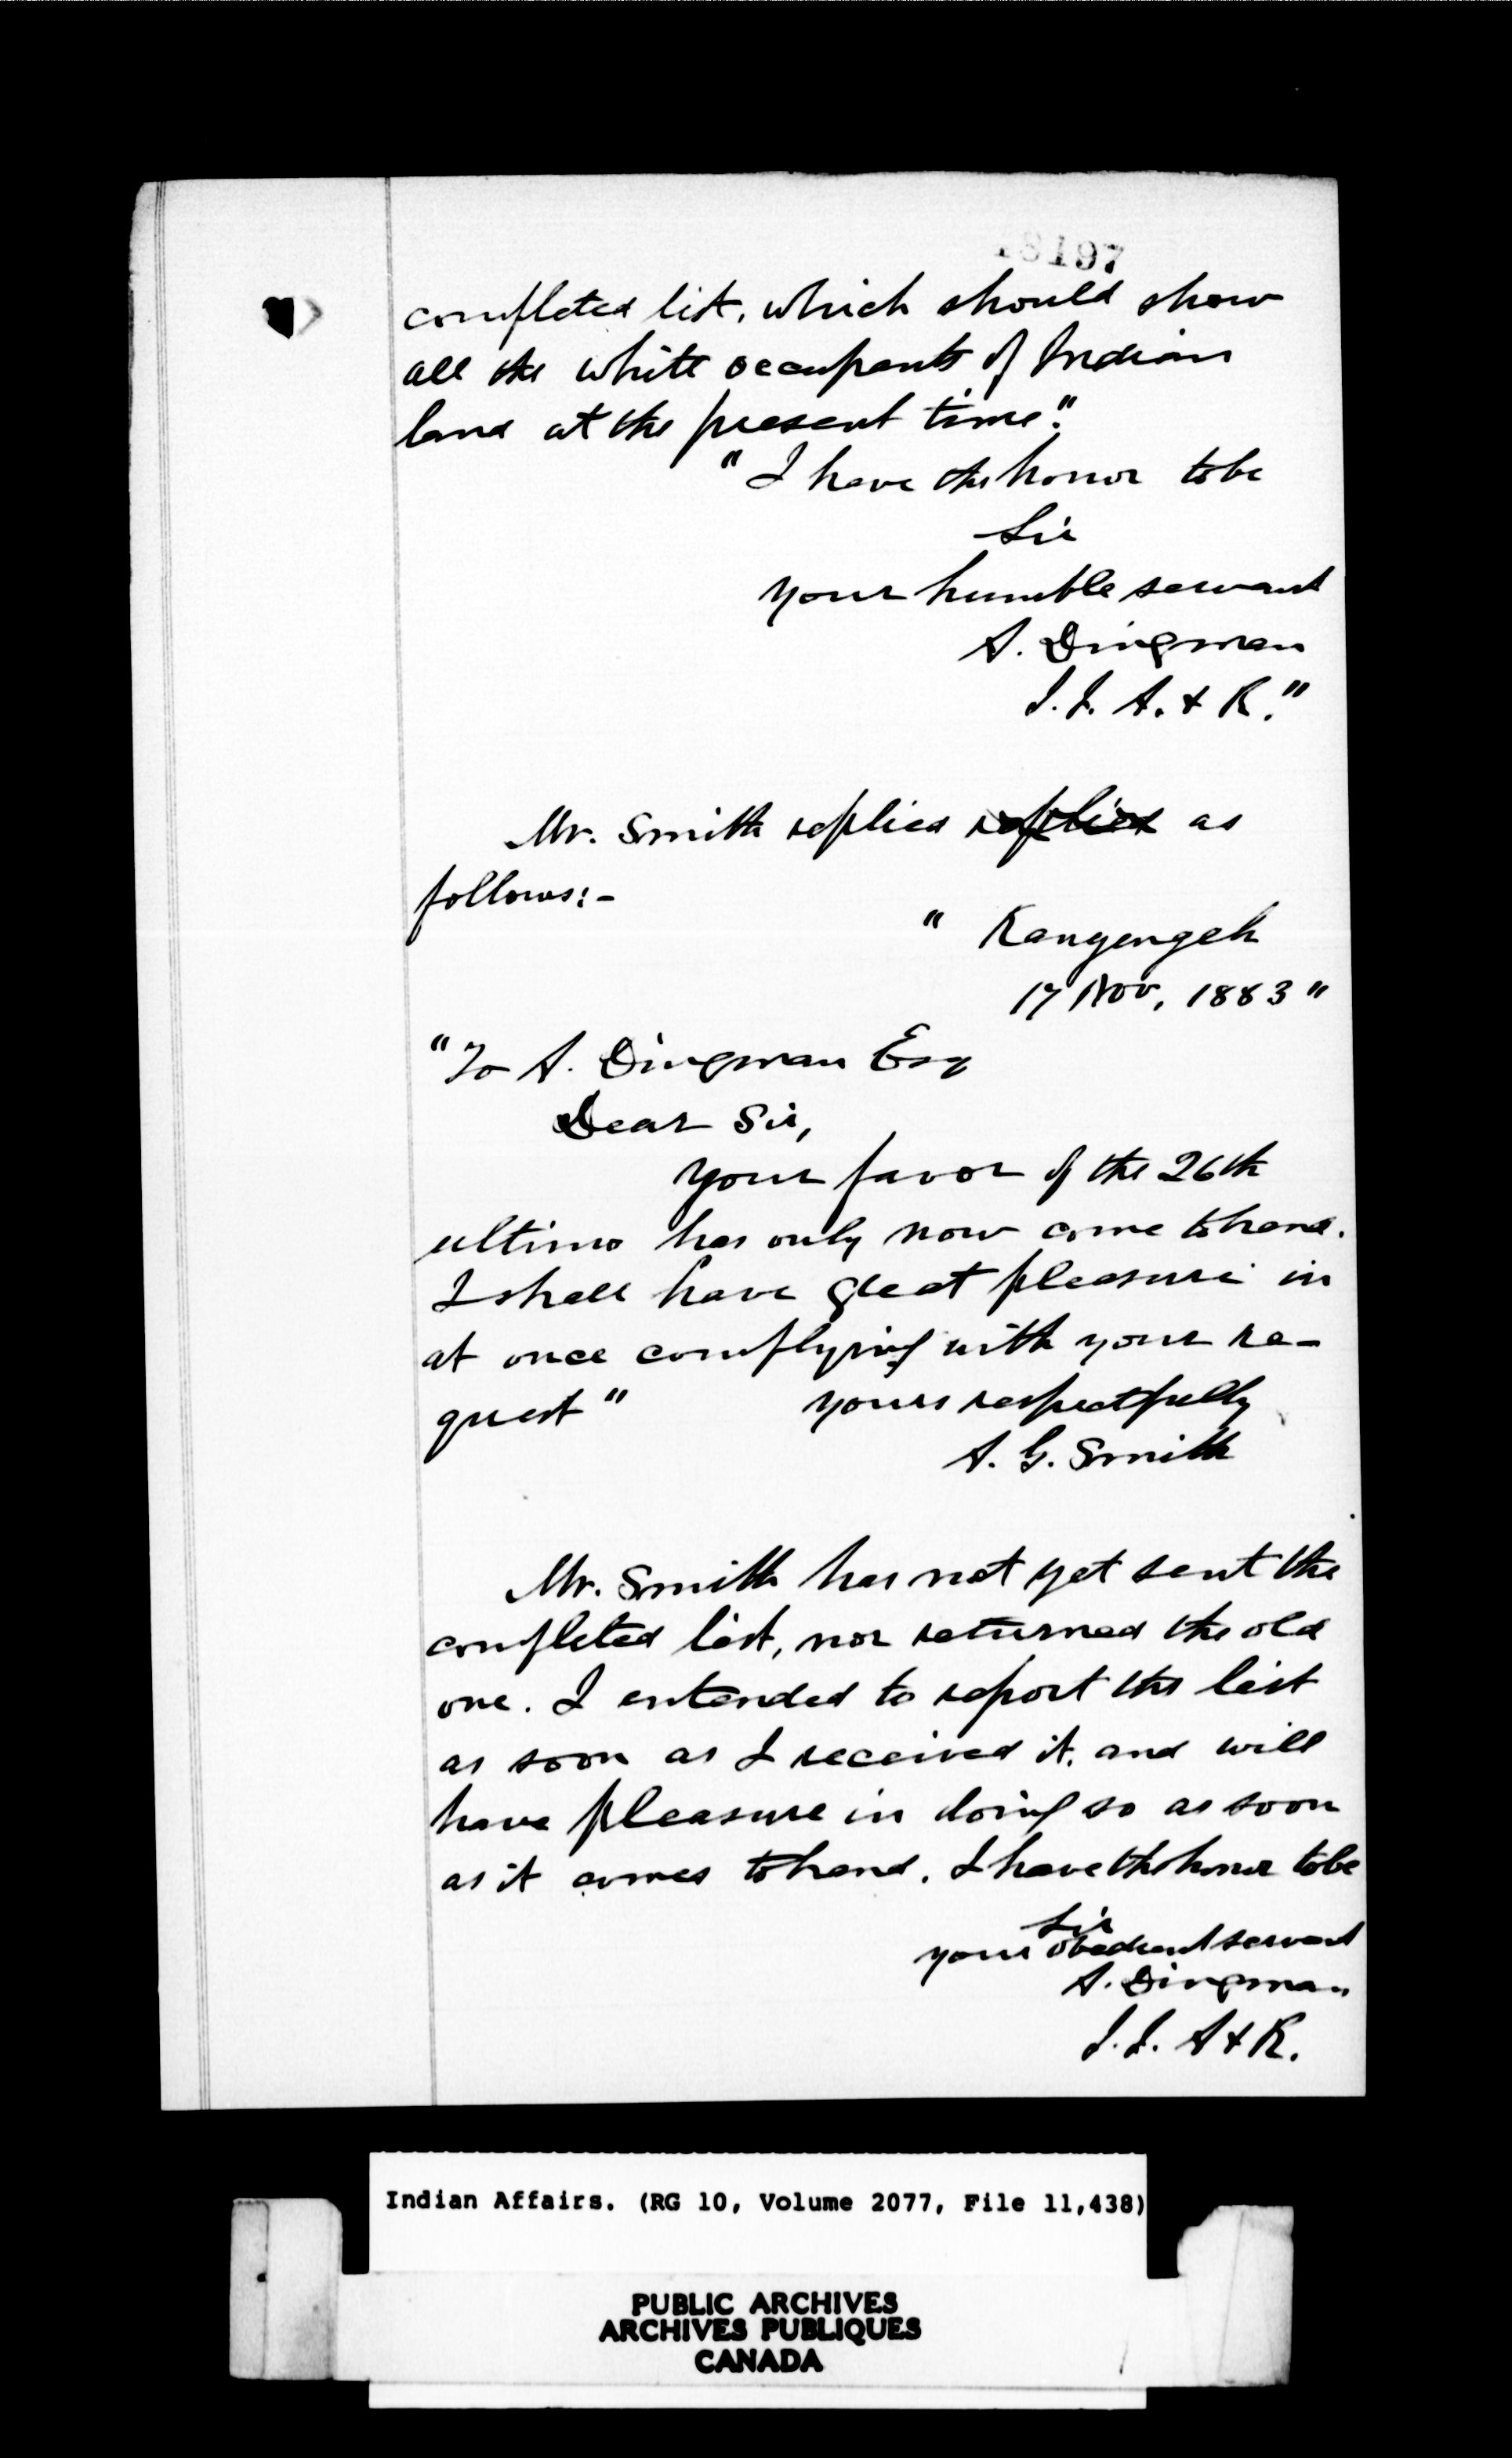 18197
completed list, which should show
all the white occupants of Indian
land at the present time."
"I have the honor to be
Sir
your humble servant
A. Dingman
I. I. A. & R."
Mr. Smith replied replied as
follows:-
" Kanyengeh
17 Nov, 1883"
"To A. Dingman Esq
Dear Sir,
Your favor of the 26th
ultimo has only now come to hand.
I shall have great pleasure in
at once complying with your re-
quest" yours respectfully
A. G. Smith
Mr. Smith has not yet sent the
completed list, nor returned the old
one. I entended to report the list
as soon as I received it, and will
have pleasure in doing so as soon
as it comes to hand. I have the honor to be
Sir
your obedient servant
A. Dingman
I. I. A & R.
Indian Affairs. (RG 10, Volume 2077, File 11,438)
PUBLIC ARCHIVES
ARCHIVES PUBLIQUES
CANADA